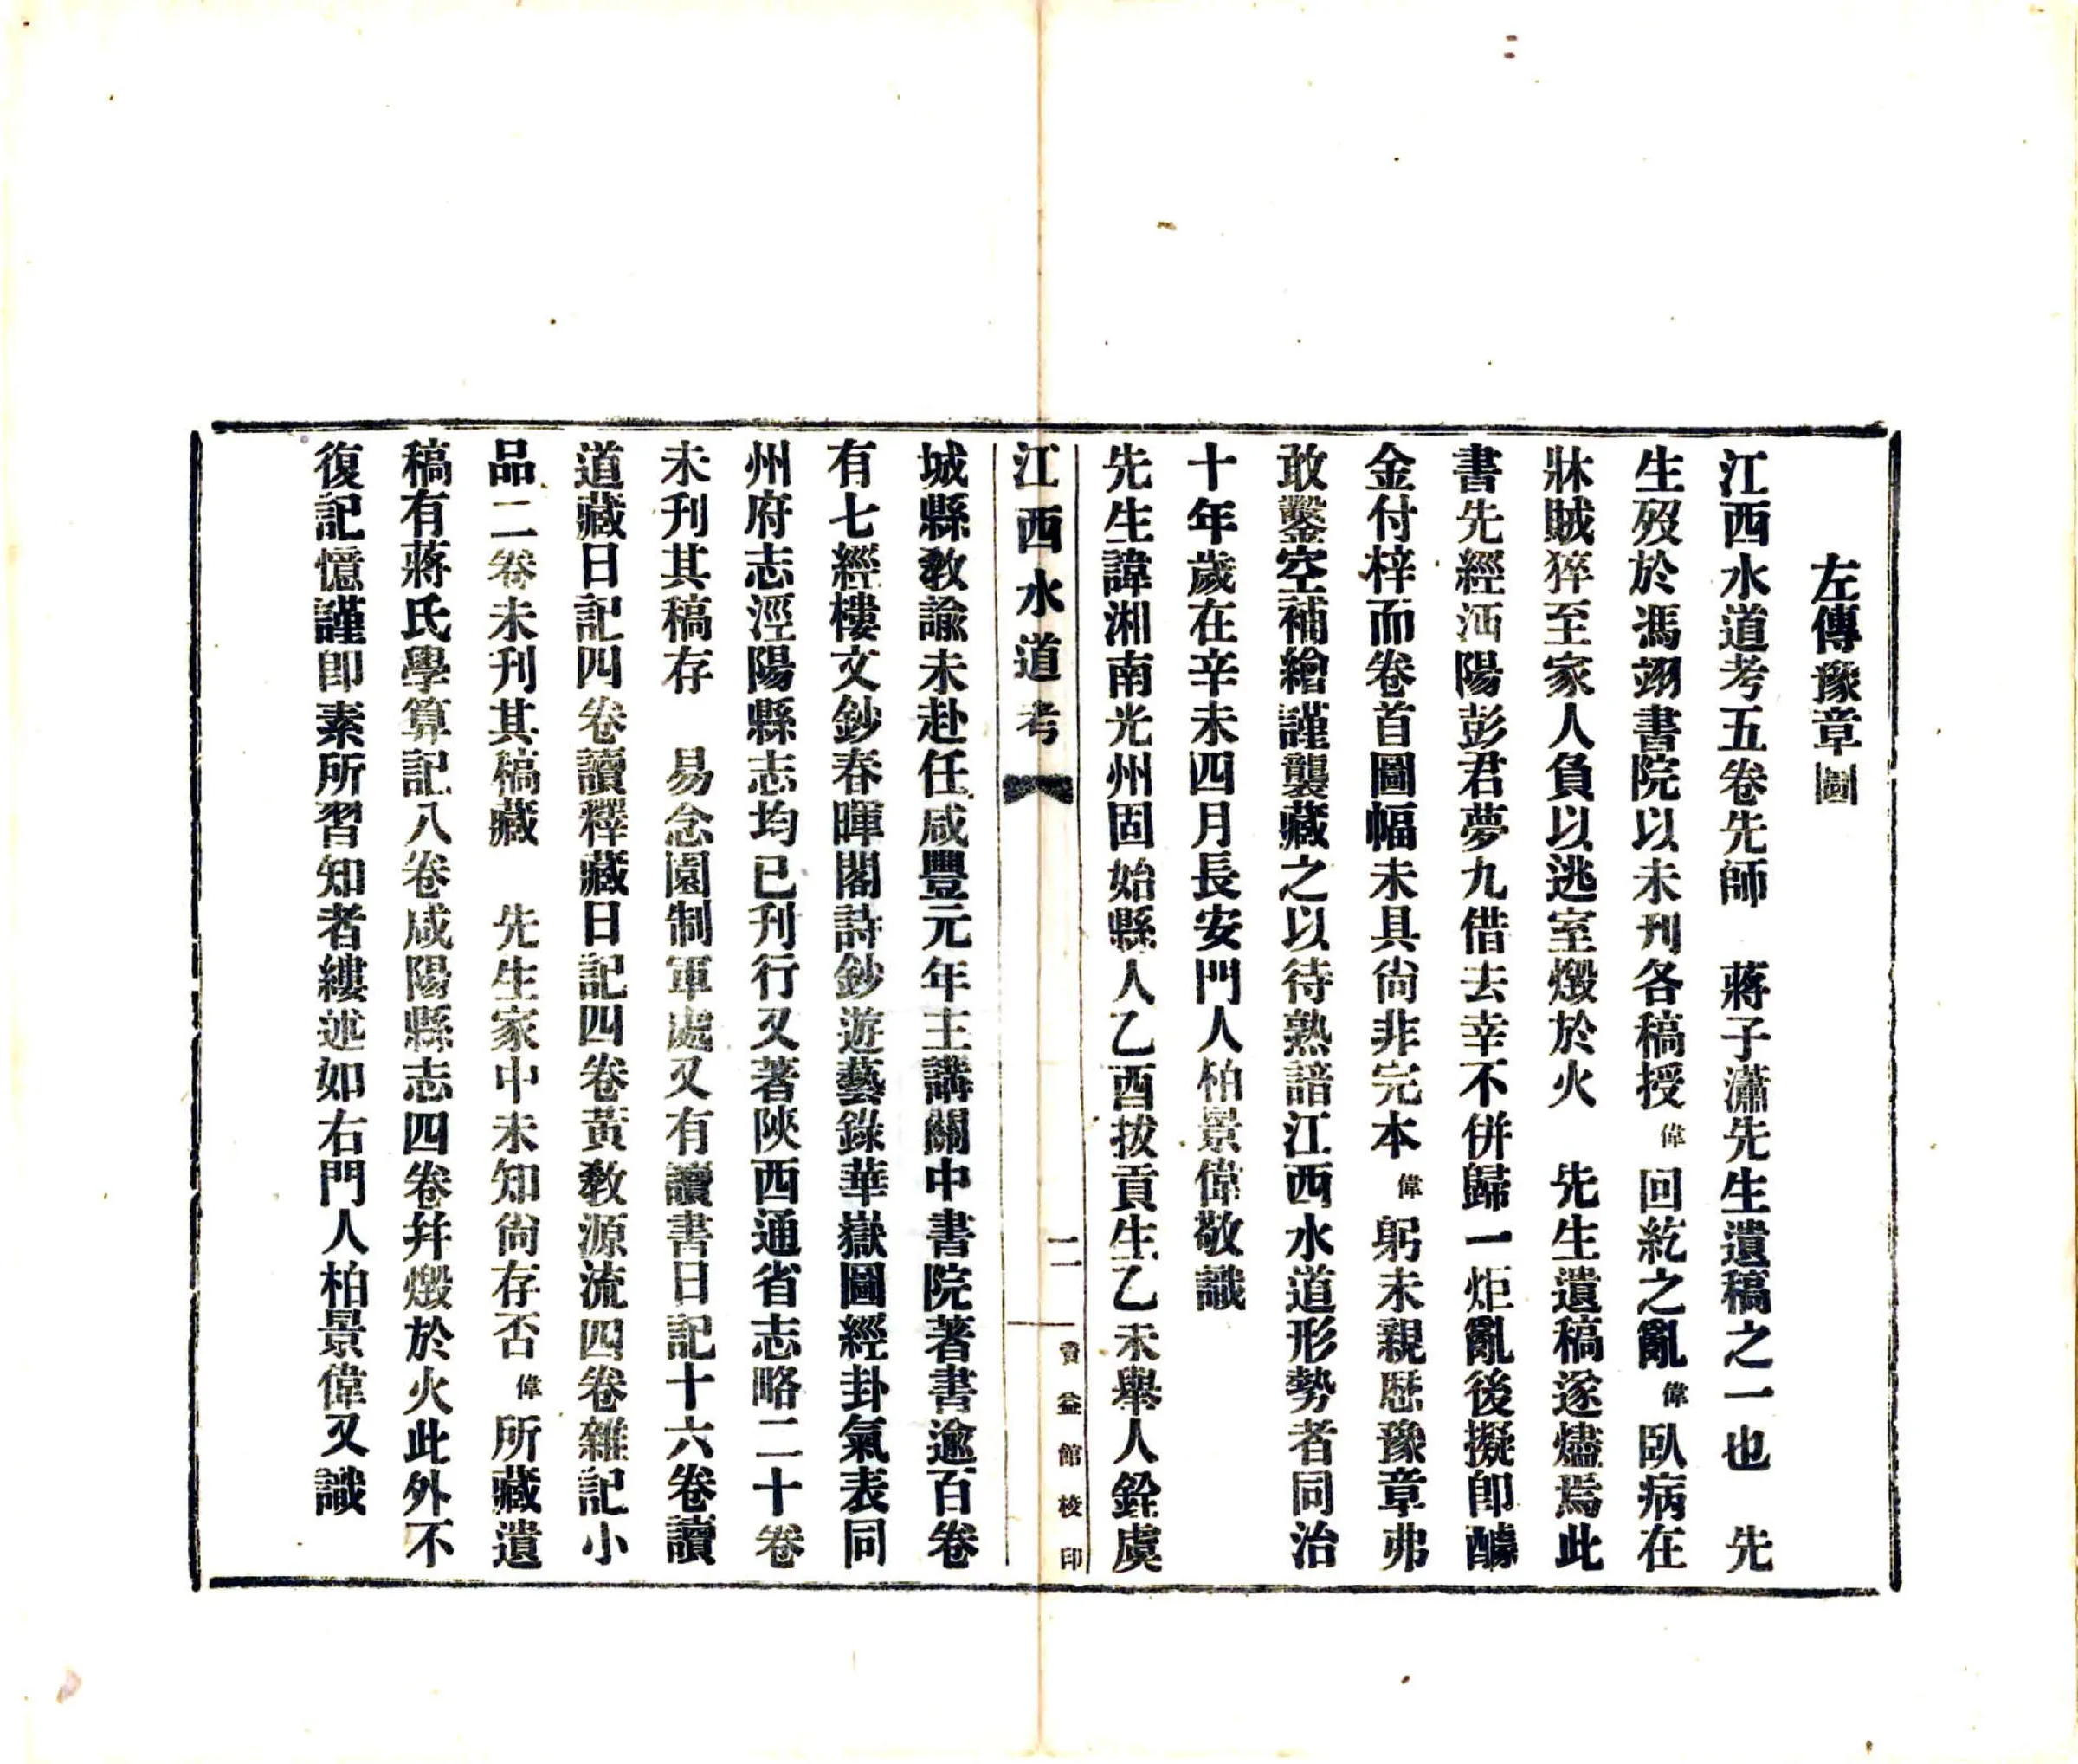 左傳豫章圖
江西水道考五卷先師　蔣子瀟先生遺稿之一也　先
生歿於馮翊書院以未刊各稿授偉回紇之亂偉臥病在
牀賊猝至家人負以逃室燬於火　先生遺稿遂燼焉此
書先經沔陽彭君夢九借去幸不併歸一炬亂後擬卽醵
金付梓而卷首圖幅未具尙非完本偉躬未親歷豫章弗
敢鑿空補繪謹襲藏之以待熟諳江西水道形勢者同治
十年歲在辛未四月長安門人柏景偉敬識
先生諱湘南光州固始縣人乙酉拔貢生乙未舉人銓虞
江西水道考
二
資益館校印
城縣敎諭未赴任咸豐元年主講關中書院著書逾百卷
有七經樓文鈔春暉閣詩鈔遊藝錄華嶽圖經卦氣表同
州府志涇陽縣志均已刊行又著陝西通省志略二十卷
未刊其稿存　易念園制軍處又有讀書日記十六卷讀
道藏日記四卷讀釋藏日記四卷黃敎源流四卷雜記小
品二卷未刊其稿藏　先生家中未知尙存否偉所藏遺
稿有蔣氏學算記八卷咸陽縣志四卷幷燬於火此外不
復記憶謹卽素所習知者縷述如右門人柏景偉又識